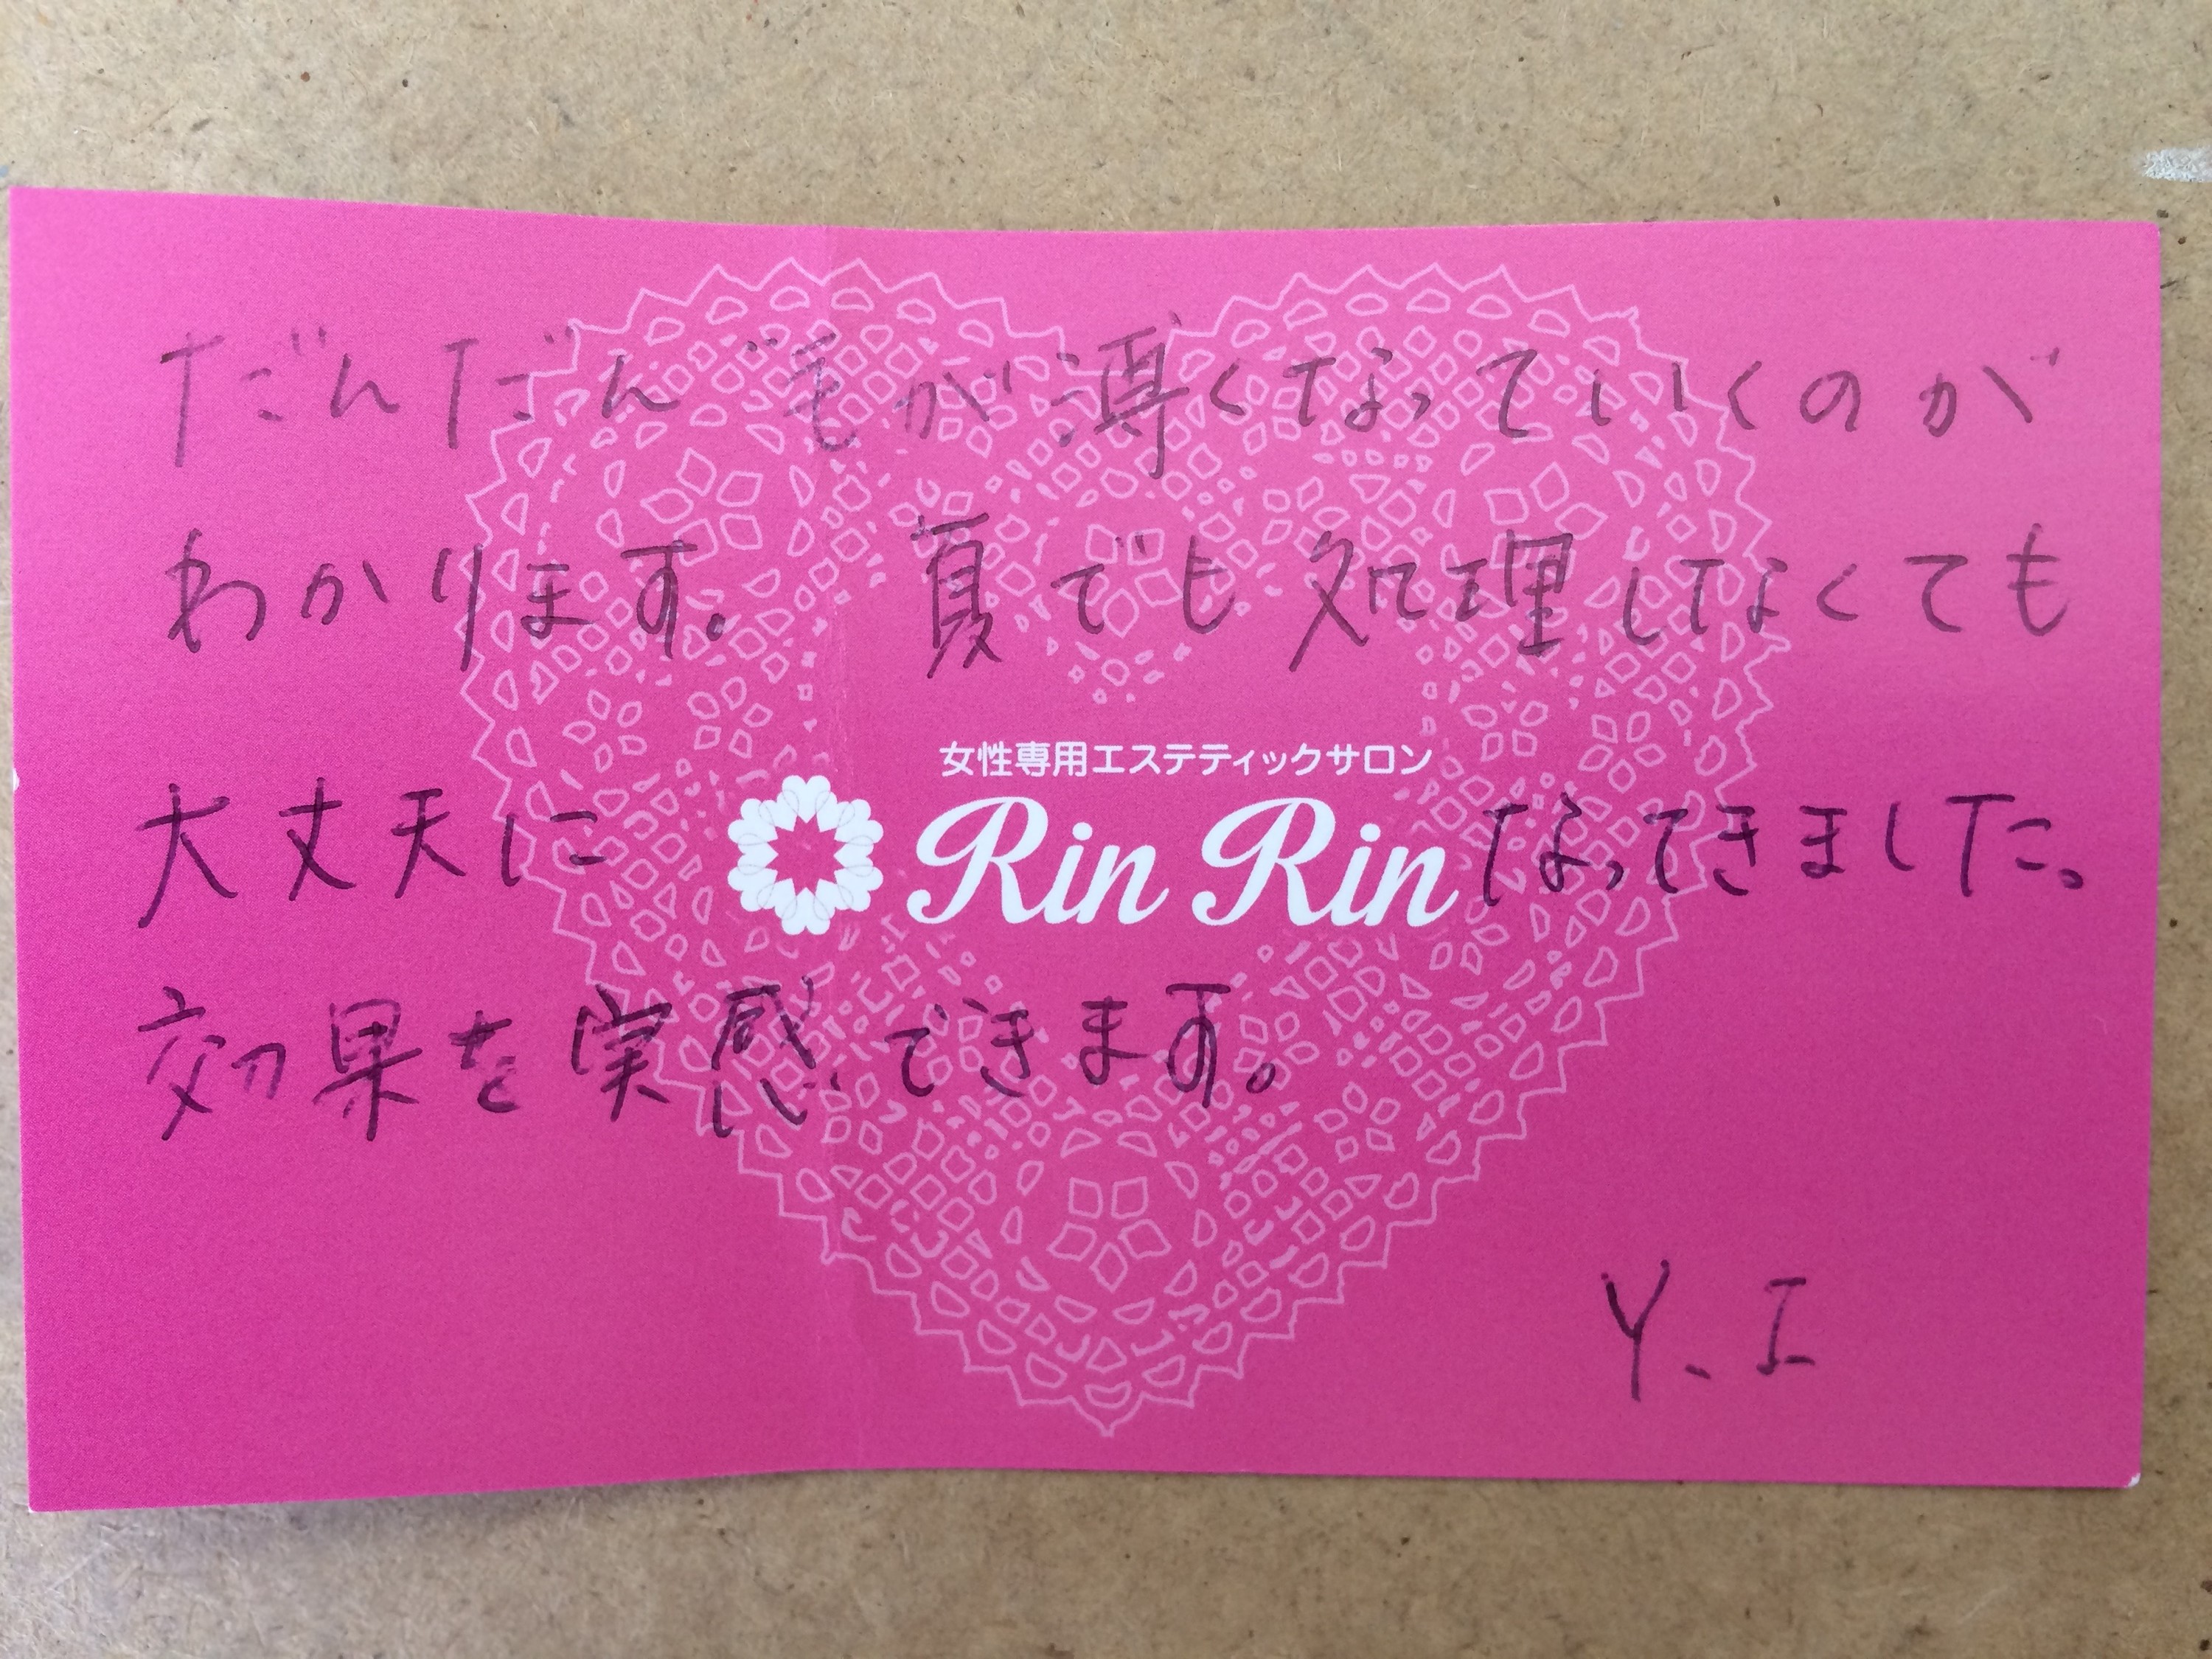 だんだん毛が薄くなっていくのが
わかります。 夏でも処理しなくても
女性専用エステティックサロン
大丈夫に Rin Rin なってきました。
効果を実感できます。
Y.I